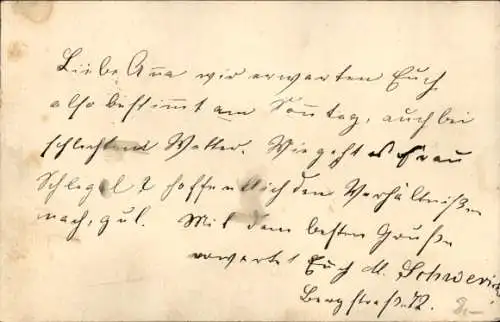 Liebe Anna wir erwarten Euch
also bestimmt am Sonntag, auch bei
schlechtem Wetter. Wie geht es Frau
Schlegel? hoffendlich den Verhältnißen
nach, gut. Mit den besten Gruße
erwartet Euch M. Schwerin
Bergstraße 12.
8.-